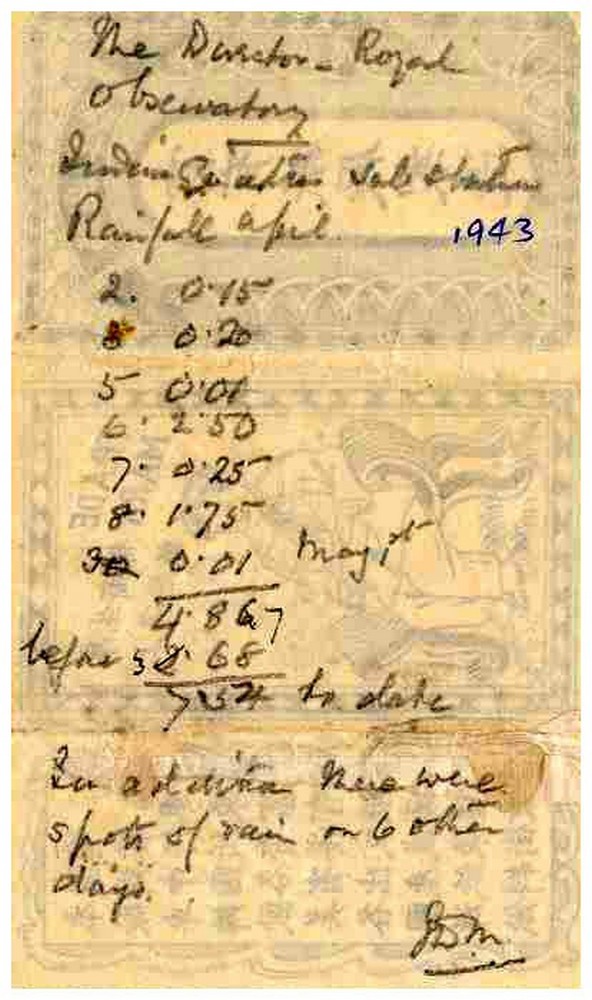 The Director - Royal
Observatory
Sub Station
Rainfall April. 1943
2. 0.15
3 0.20
5 0.01
6. 2.50
7. 0.25
8. 1.75
30 0.01 May 1st
4.867
before 3 2.68
7.54 to date
In addition there were
spots of rain on 6 other
days.